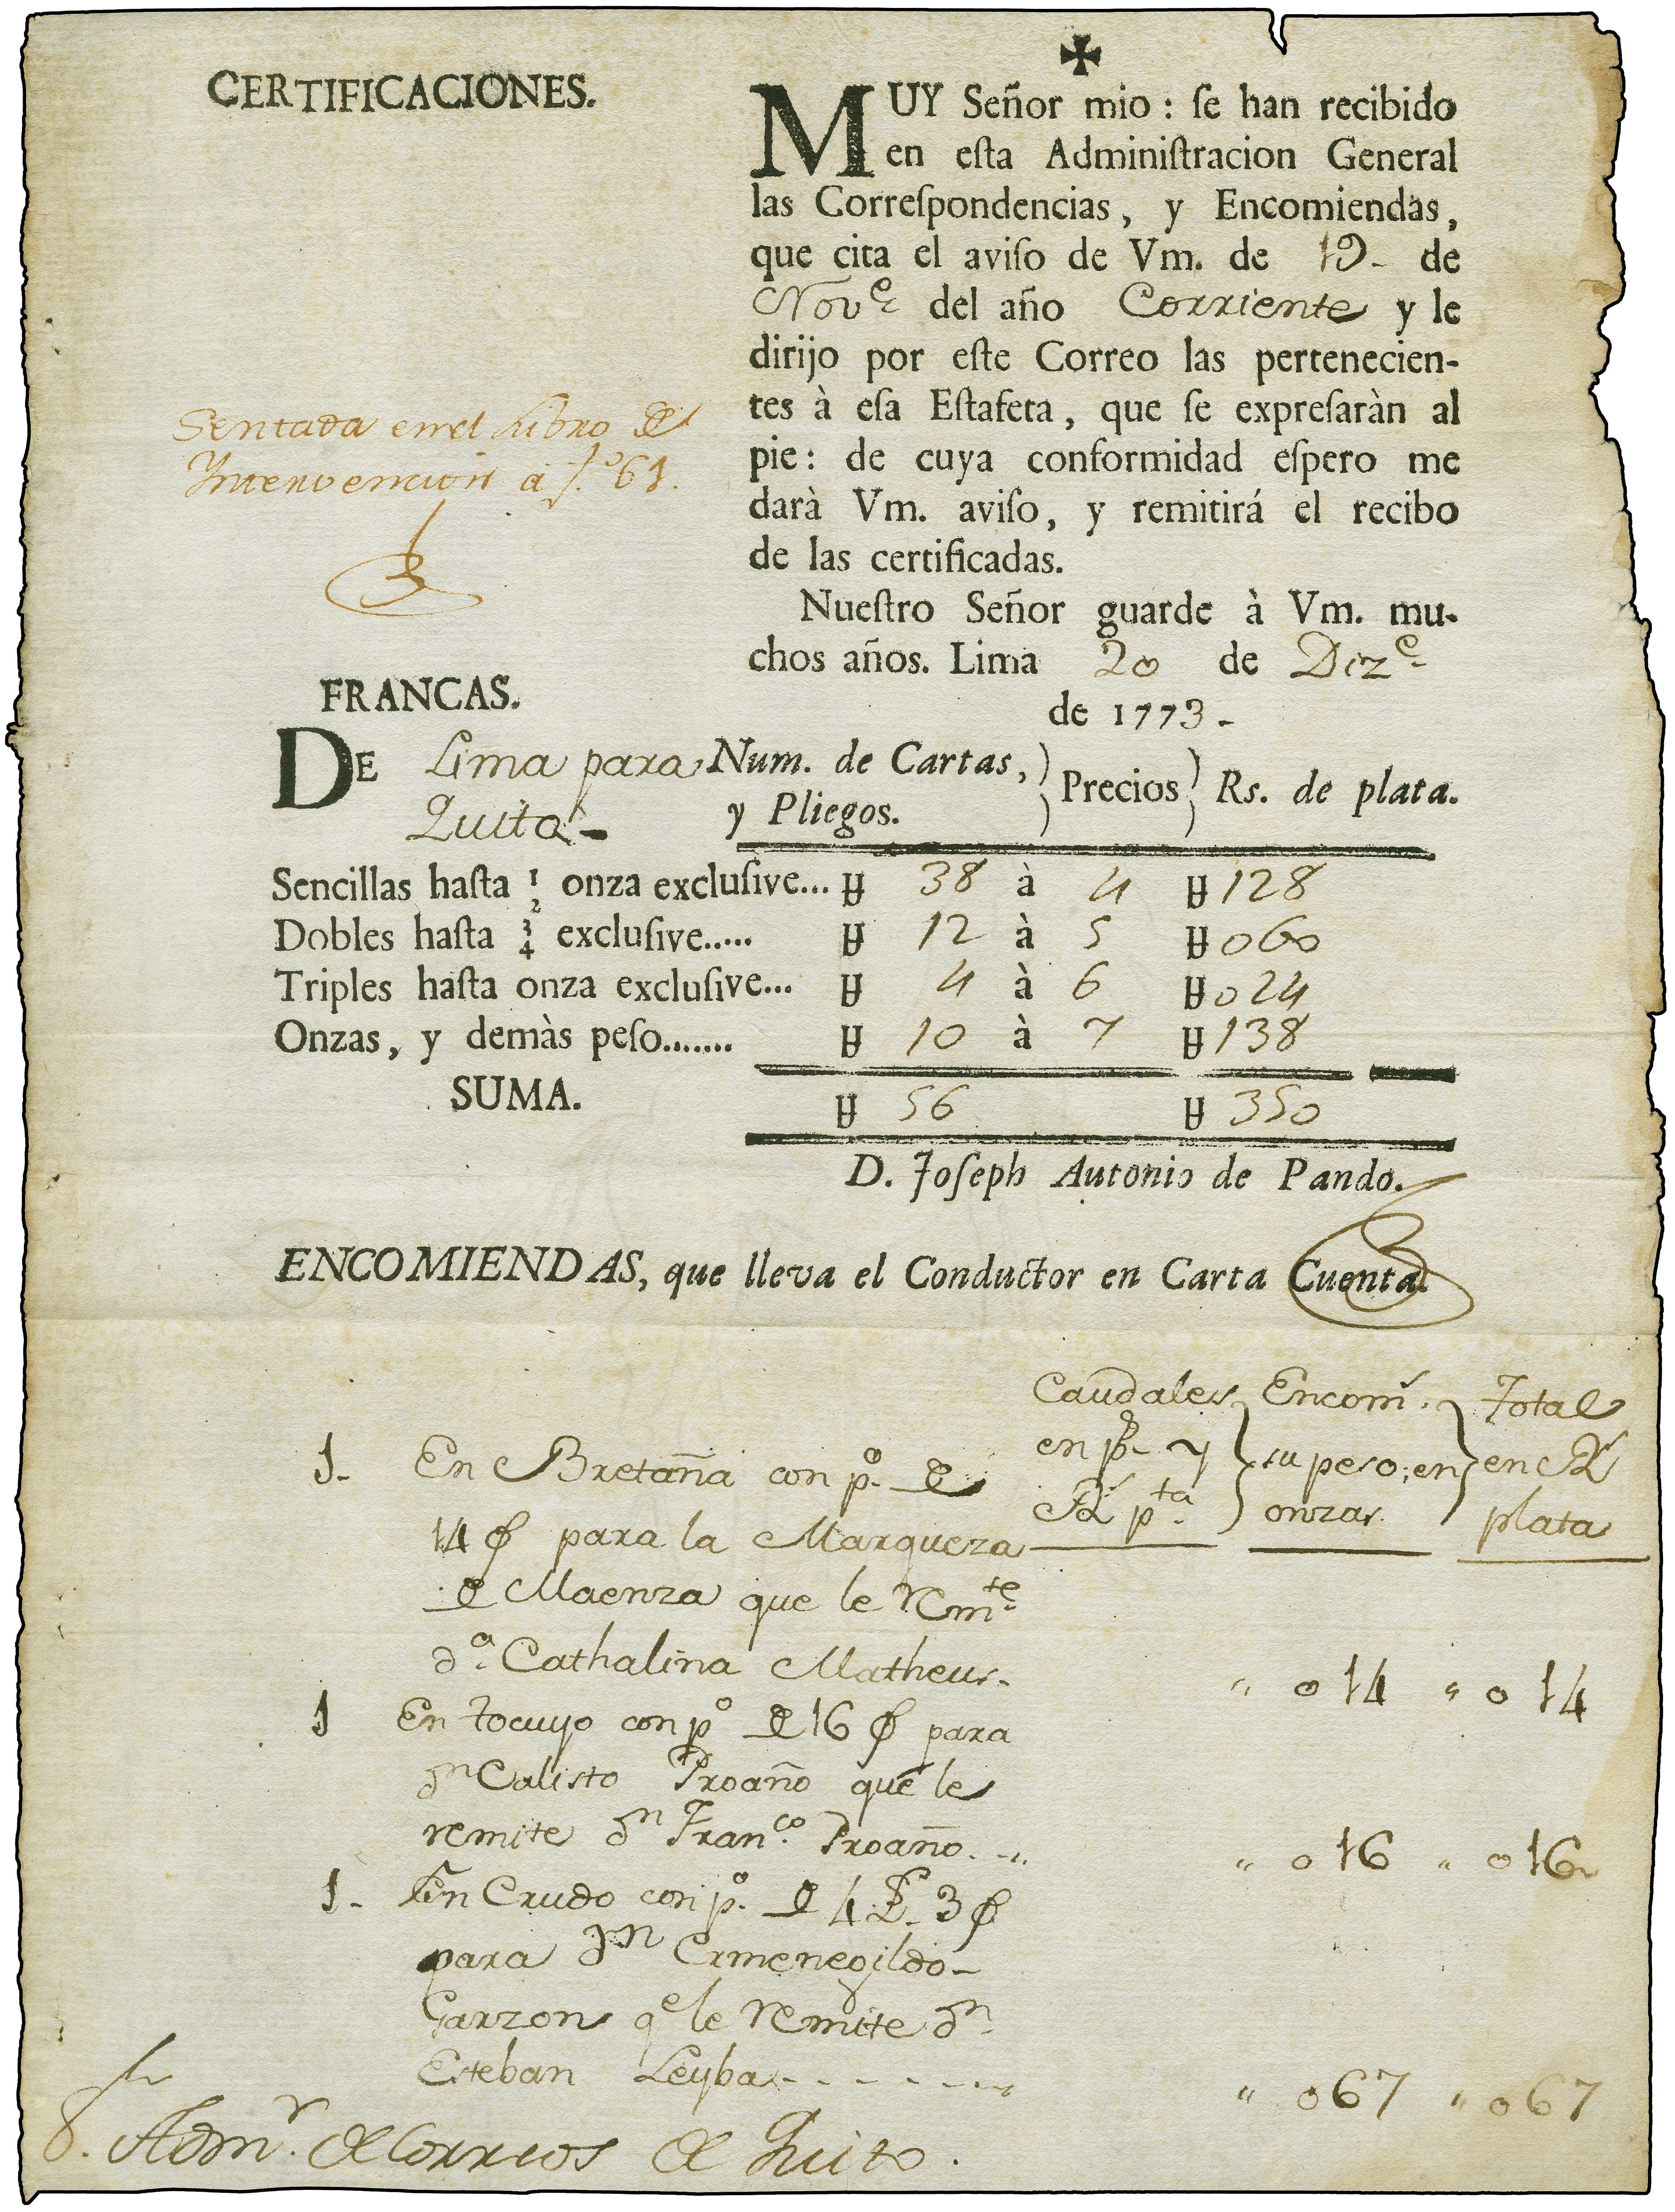 ✠
CERTIFICACIONES.
MUY Señor mio : ſe han recibido
en eſta Adminiſtracion General
las Correſpondencias, y Encomiendas,
que cita el aviſo de Vm. de 19- de
Nov.e del año Corriente y le
dirijo por eſte Correo las pertenecien-
tes à eſa Eſtafeta, que ſe expreſaràn al
pie: de cuya conformidad eſpero me
darà Vm. aviſo, y remitirá el recibo
de las certificadas.
Nueſtro Señor guarde à Vm. mu-
chos años. Lima 20 de Diz.e
de 1773-
Sentada en el Libro de
Yntervencion a f.o 61.
FRANCAS.
DE Lima para
Quito-
Num. de Cartas,
y Pliegos.
Precios
Rs. de plata.
Sencillas haſta 1/2 onza excluſive... 38 à 4 128
Dobles haſta 3/4 excluſive..... 12 à 5 060
Triples haſta onza excluſive... 4 à 6 024
Onzas, y demàs peſo....... 10 à 7 138
SUMA. 56 350
D. Joſeph Autonio de Pando.
ENCOMIENDAS, que lleva el Conductor en Carta Cuenta.
Caudales en ps. y Rs. pta.
Encoms. su peso, en onzas.
Total en Rs. plata
1- En Bretaña con p.o de
14 φ para la Marqueza
de Maenza que le Rem.te
d.a Cathalina Matheus- " 014 " 014
1 En tocuyo con p.o de 16 φ para
dn Calisto Proaño que le
remite dn Fran.co Proaño. " 016 " 016
1- En Crudo con p.o de 4 £ 3 φ
para dn Ermenegildo-
Garzon qe le Remite dn.
Esteban Leyba - - - - - - " 067 " 067
Sr. Admr. de Correos de Quito.